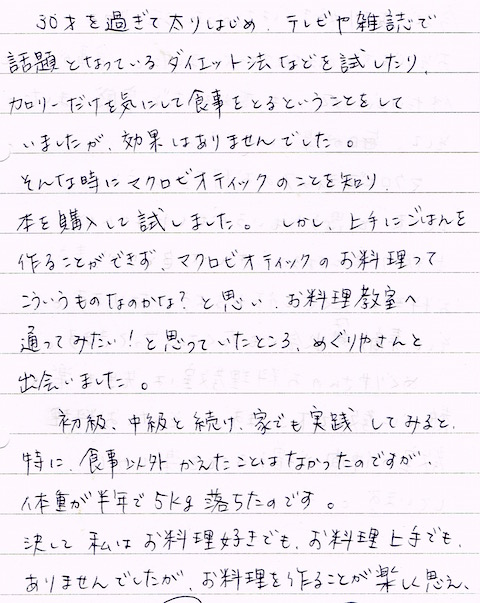 30才を過ぎて太りはじめ、テレビや雑誌で
話題となっているダイエット法などを試したり、
カロリーだけを気にして食事をとるということをして
いましたが、効果はありませんでした。
そんな時にマクロビオティックのことを知り、
本を購入して試しました。しかし、上手にごはんを
作ることができず、マクロビオティックのお料理って
こういうものなのかな?と思い、お料理教室へ
通ってみたい!と思っていたところ、めぐりやさんと
出会いました。
初級、中級と続け、家でも実践してみると、
特に、食事以外かえたことはなかったのですが、
体重が半年で5kg落ちたのです。
決して私はお料理好きでも、お料理上手でも、
ありませんでしたが、お料理を作ることが楽しく思え、